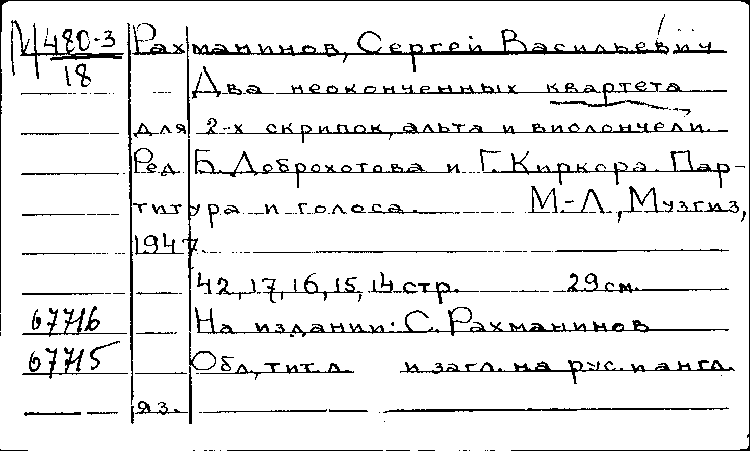 М 480-3 Рахманинов, Сергей Васильевич
18 Два неоконченных квартета
для 2-х скрипок, альта и виолончели.
Ред. Б. Доброхотова и Г. Киркора. Пар-
титура и голоса. М.-Л., Музгиз,
1947.
42, 17, 16, 15, 14 стр. 29 см.
67716 На издании: С. Рахманинов
67715 Обл., тит. л. и загл. на рус. и англ.
яз.